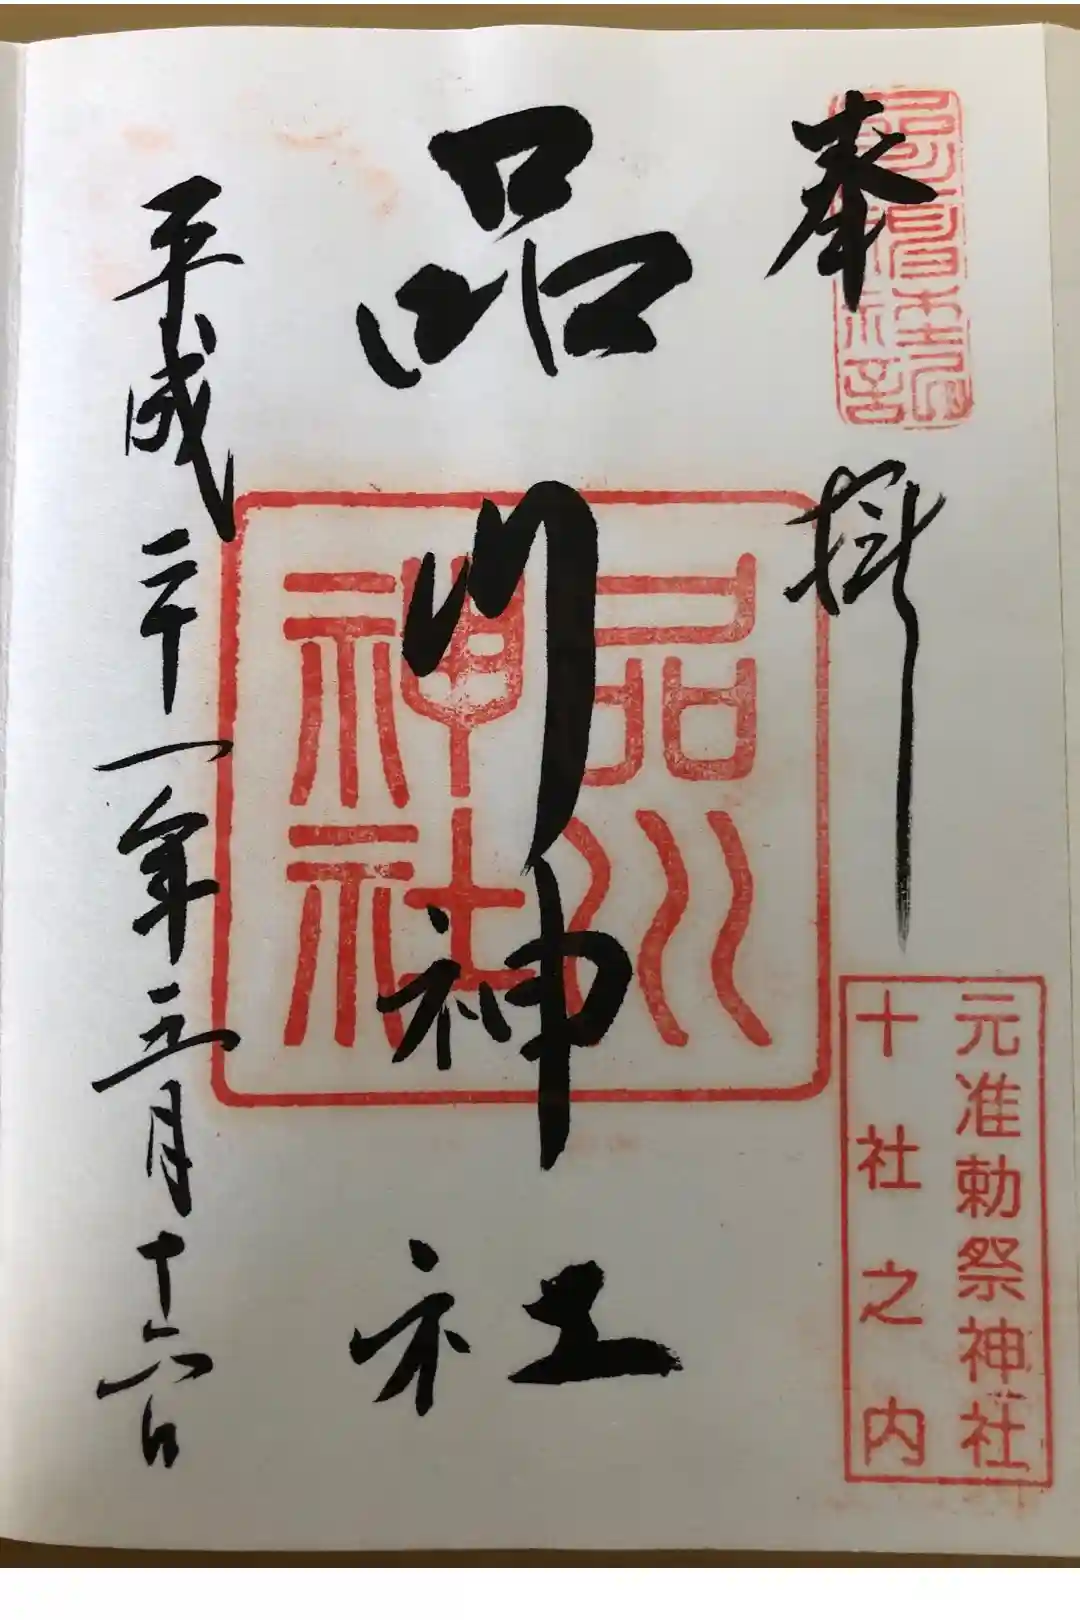 奉拝
元准勅祭神社
十社之内
品川神社
品川
神社
平成二十一年五月十六日